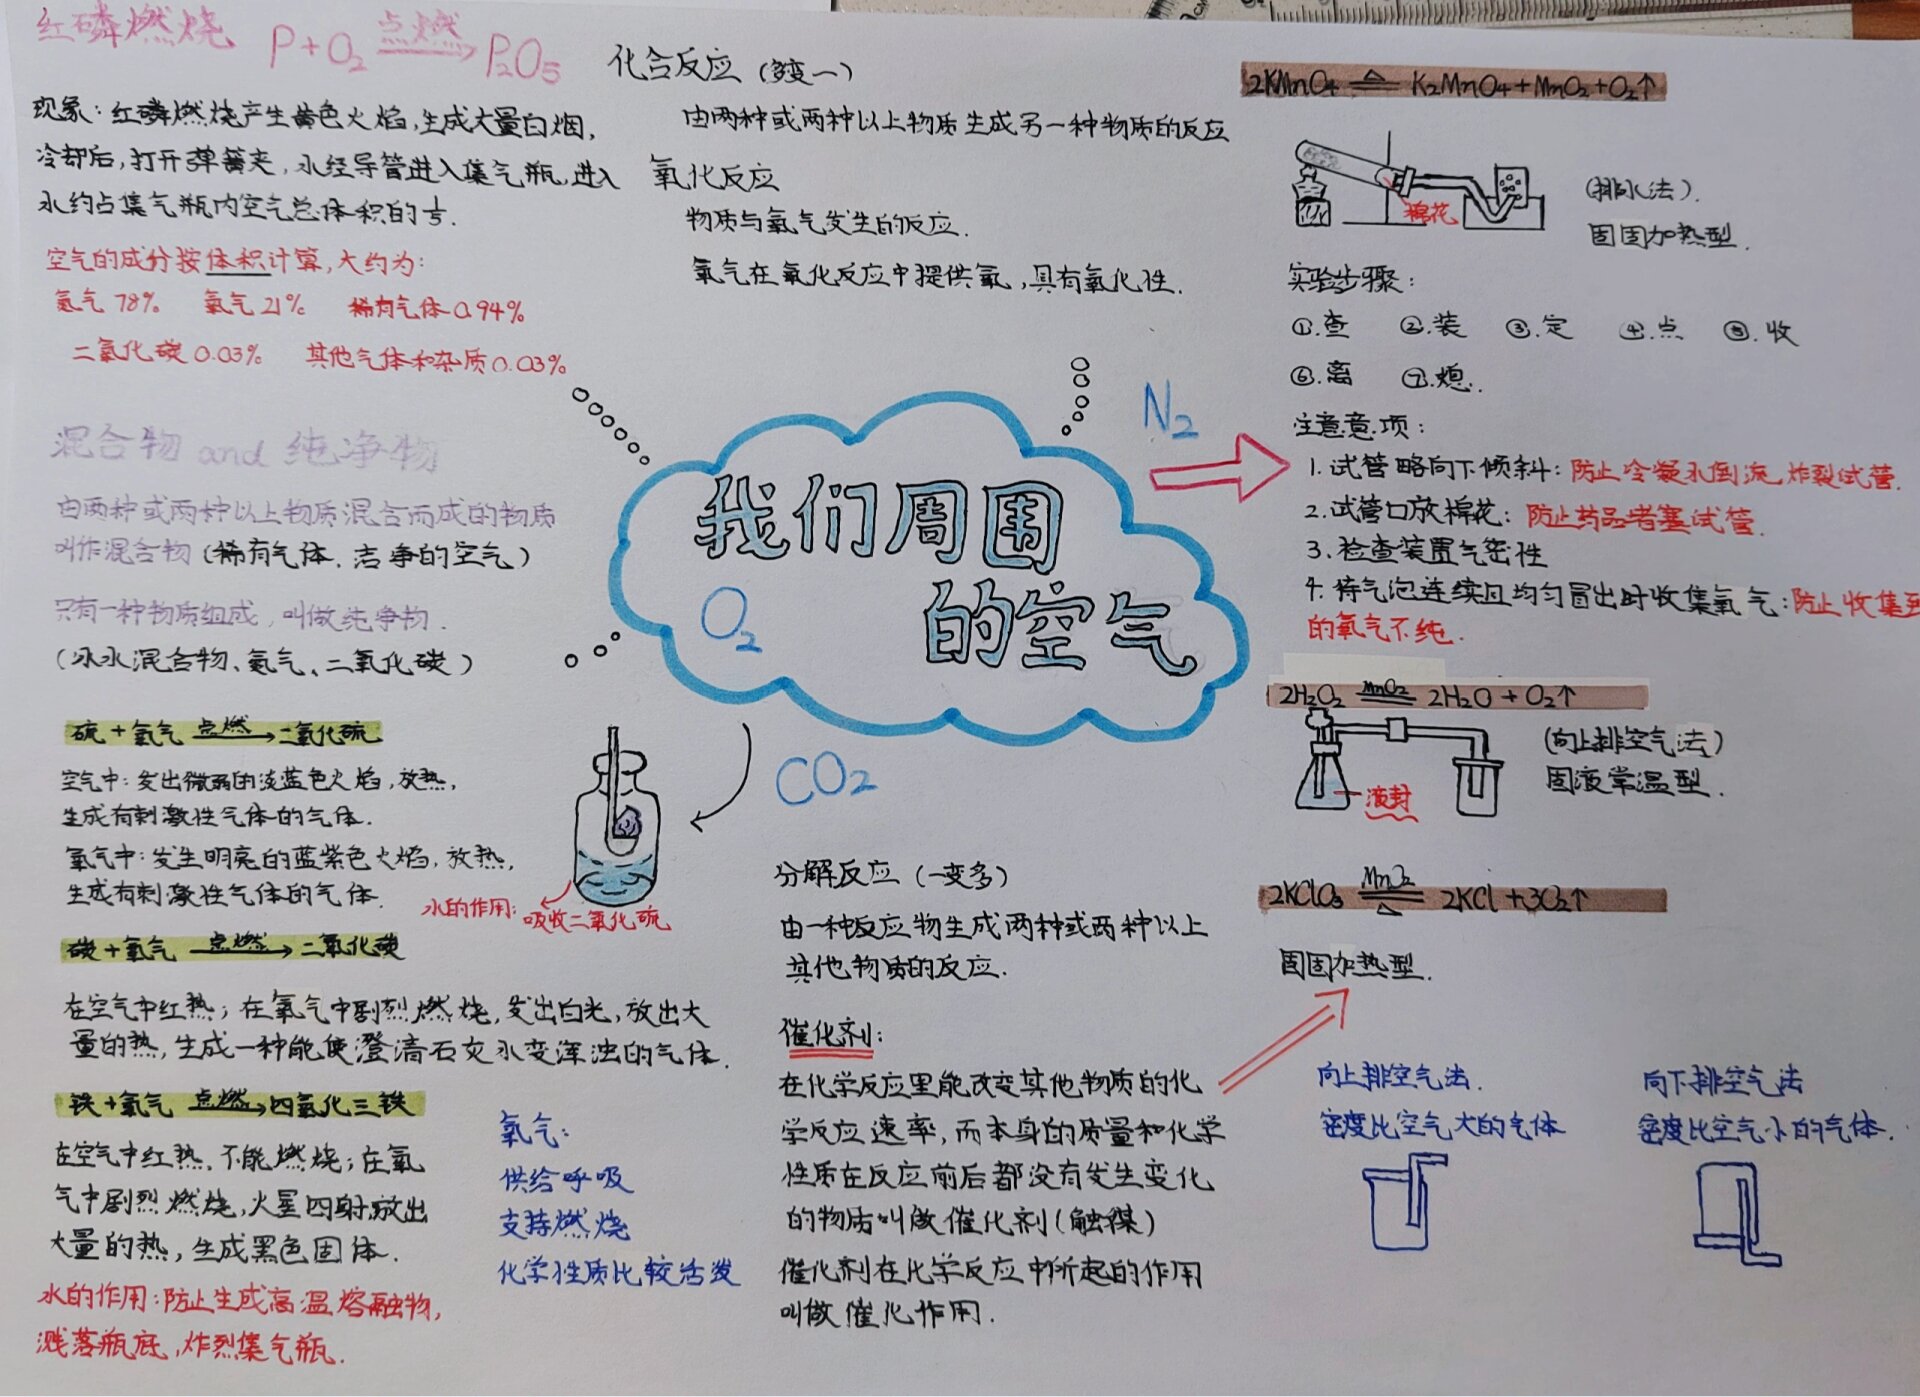 红磷燃烧 P+O₂ 点燃 P₂O₅
现象：红磷燃烧产生黄色火焰，生成大量白烟，
冷却后，打开弹簧夹，水经导管进入集气瓶，进入
水约占集气瓶内空气总体积的⅕.
空气的成分按体积计算，大约为：
氮气78% 氧气21% 稀有气体0.94%
二氧化碳0.03% 其他气体和杂质0.03%
混合物 and 纯净物
由两种或两种以上物质混合而成的物质
叫作混合物（稀有气体、洁净的空气）
只有一种物质组成，叫做纯净物.
（冰水混合物、氮气、二氧化碳）
硫+氧气 点燃 二氧化硫
空气中：发出微弱的淡蓝色火焰，放热，
生成有刺激性气体的气体.
氧气中：发生明亮的蓝紫色火焰，放热，
生成有刺激性气体的气体.
水的作用：吸收二氧化硫
碳+氧气 点燃 二氧化碳
在空气中红热；在氧气中剧烈燃烧，发出白光，放出大
量的热，生成一种能使澄清石灰水变浑浊的气体.
铁+氧气 点燃 四氧化三铁
在空气中红热，不能燃烧；在氧
气中剧烈燃烧，火星四射，放出
大量的热，生成黑色固体.
水的作用：防止生成高温熔融物，
溅落瓶底，炸烈集气瓶.
氧气：
供给呼吸
支持燃烧
化学性质比较活发
化合反应（多变一）
由两种或两种以上物质生成另一种物质的反应
氧化反应
物质与氧气发生的反应.
氧气在氧化反应中提供氧，具有氧化性.
我们周围
的空气
O₂
N₂
CO₂
分解反应（一变多）
由一种反应物生成两种或两种以上
其他物质的反应.
催化剂：
在化学反应里能改变其他物质的化
学反应速率，而本身的质量和化学
性质在反应前后都没有发生变化
的物质叫做催化剂（触媒）
催化剂在化学反应中所起的作用
叫做催化作用.
2KMnO₄ △ K₂MnO₄+MnO₂+O₂↑
棉花
（排水法）.
固固加热型.
实验步骤：
①.查 ②.装 ③.定 ④.点 ⑤.收
⑥.离 ⑦.熄.
注意意项：
1.试管略向下倾斜：防止冷凝水倒流，炸裂试管.
2.试管口放棉花：防止药品堵塞试管.
3.检查装置气密性
4.待气泡连续且均匀冒出时收集氧气：防止收集到
的氧气不纯.
2H₂O₂ MnO₂ 2H₂O+O₂↑
（向上排空气法）
固液常温型.
液封
2KClO₃ MnO₂ △ 2KCl+3O₂↑
固固加热型.
向上排空气法.
密度比空气大的气体
向下排空气法
密度比空气小的气体.